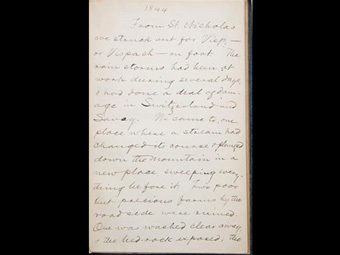 1844
From St. Nicholas
we struck out for Visp —
or Vispach — on foot. The
rain storms had been at
work during several days,
& had done a deal of dam-
age in Switzerland and
Savoy. We came to one
place where a stream had
changed its course & plunged
down the mountain in a
new place, sweeping every-
thing before it. Two poor
but precious farms by the
road side were ruined.
One was washed clear away
& the bed-rock exposed, the